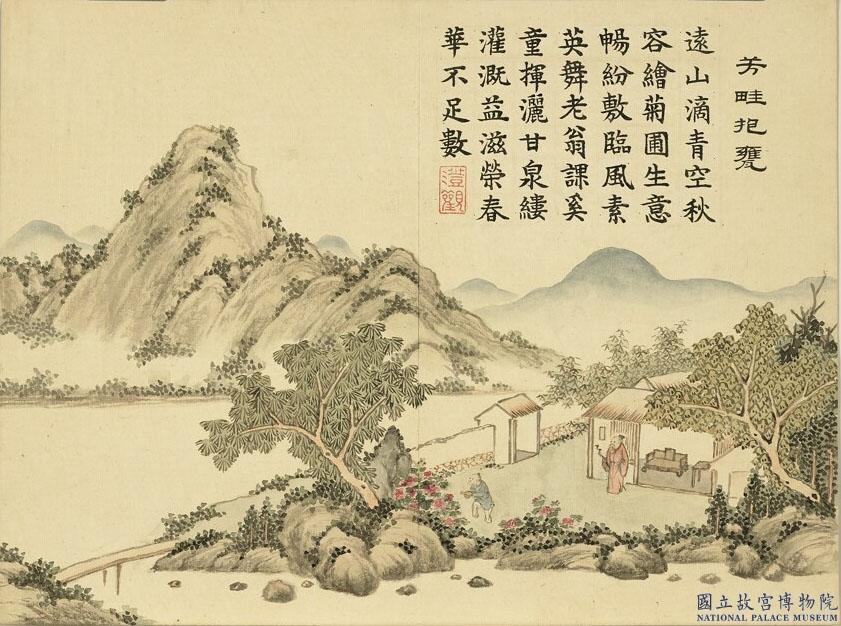 芳畦抱甕
遠山滴青空秋
容繪菊圃生意
暢紛敷臨風素
英舞老翁課奚
童揮灑甘泉縷
灌溉益滋榮春
華不足數
澄觀
國立故宮博物院
NATIONAL PALACE MUSEUM